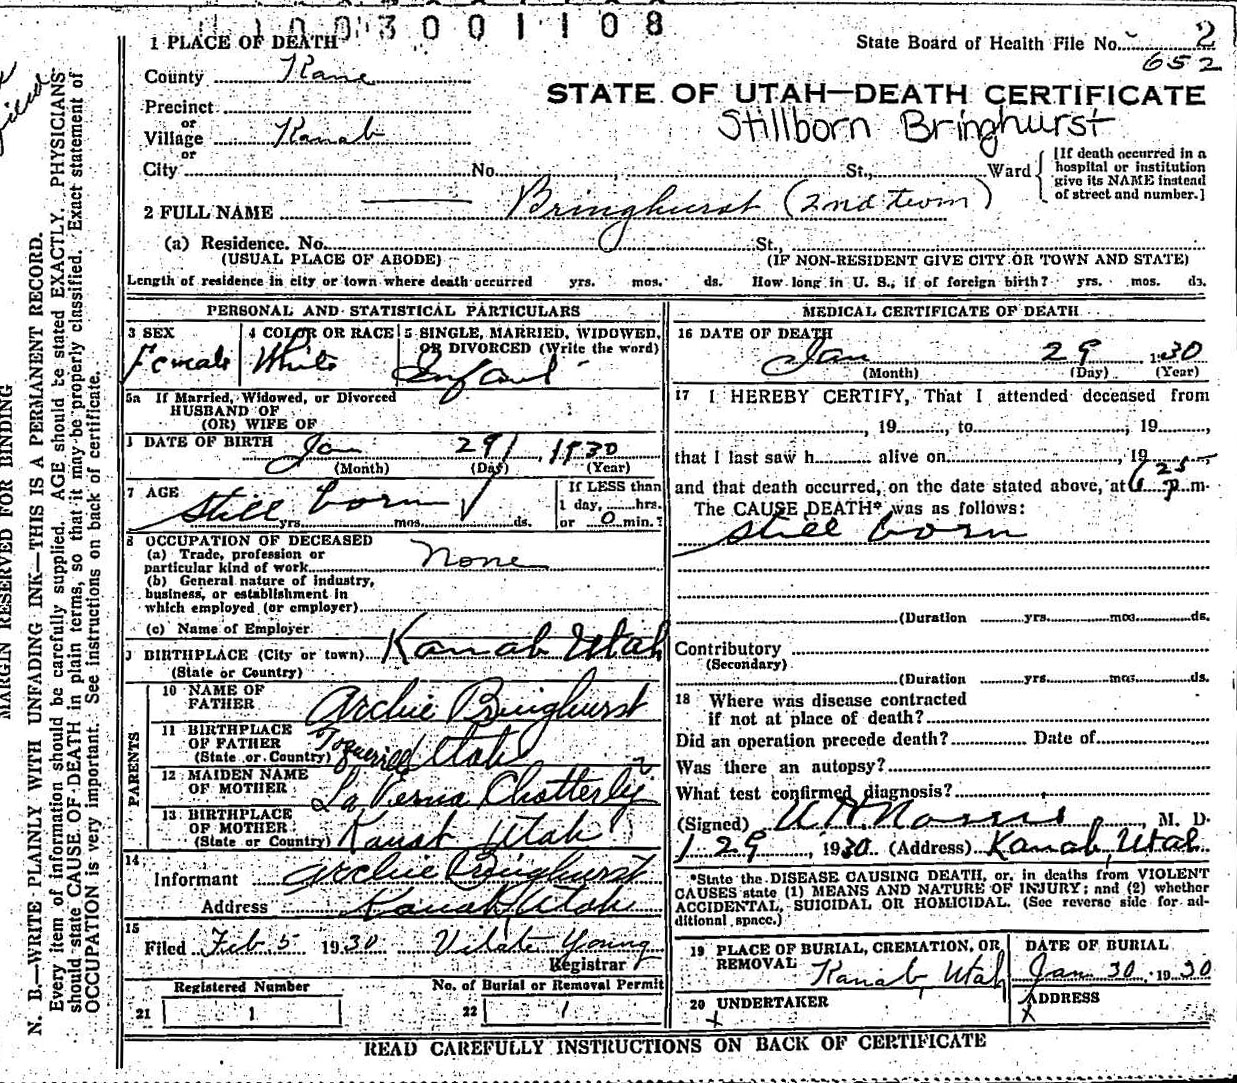 1003001108
1 PLACE OF DEATH
State Board of Health File No. 2
652
County Kane
STATE OF UTAH—DEATH CERTIFICATE
Stillborn Bringhurst
Precinct
or
Village Kanab
or
City No. St., Ward
[If death occurred in a
hospital or institution
give its NAME instead
of street and number.]
2 FULL NAME Bringhurst (2nd twin)
(a) Residence. No. St.,
(USUAL PLACE OF ABODE) (IF NON-RESIDENT GIVE CITY OR TOWN AND STATE)
Length of residence in city or town where death occurred yrs. mos. ds. How long in U. S., if of foreign birth? yrs. mos. ds.
PERSONAL AND STATISTICAL PARTICULARS
3 SEX Female
4 COLOR OR RACE White
5 SINGLE, MARRIED, WIDOWED,
OR DIVORCED (Write the word)
Infant
5a If Married, Widowed, or Divorced
HUSBAND OF
(OR) WIFE OF
DATE OF BIRTH Jan 29, 1930
(Month) (Day) (Year)
7 AGE Still born
yrs. mos. ds.
If LESS than
1 day, hrs.
or 0 min.?
8 OCCUPATION OF DECEASED
(a) Trade, profession or
particular kind of work None
(b) General nature of industry,
business, or establishment in
which employed (or employer)
(c) Name of Employer
BIRTHPLACE (City or town) Kanab Utah
(State or Country)
PARENTS
10 NAME OF
FATHER Archie Bringhurst
11 BIRTHPLACE
OF FATHER
(State or Country) Utah
12 MAIDEN NAME
OF MOTHER La Verna Chatterly
13 BIRTHPLACE
OF MOTHER
(State or Country) Utah
14
Informant Archie Bringhurst
Address Kanab, Utah
15
Filed Feb 5 1930 Vilate Young
Registrar
Registered Number No. of Burial or Removal Permit
21 1 22 1
MEDICAL CERTIFICATE OF DEATH
16 DATE OF DEATH
Jan 29 1930
(Month) (Day) (Year)
17 I HEREBY CERTIFY, That I attended deceased from
, 19 , to , 19 ,
that I last saw h alive on , 19 ,
and that death occurred, on the date stated above, at 6 25 p m.
The CAUSE DEATH* was as follows:
still born
(Duration yrs. mos. ds.
Contributory
(Secondary)
(Duration yrs. mos. ds.
18 Where was disease contracted
if not at place of death?
Did an operation precede death? Date of
Was there an autopsy?
What test confirmed diagnosis?
(Signed) Norris, M. D.
1 29, 1930 (Address) Kanab, Utah
*State the DISEASE CAUSING DEATH, or, in deaths from VIOLENT
CAUSES state (1) MEANS AND NATURE OF INJURY; and (2) whether
ACCIDENTAL, SUICIDAL OR HOMICIDAL. (See reverse side for ad-
ditional space.)
19 PLACE OF BURIAL, CREMATION, OR
REMOVAL Kanab, Utah
DATE OF BURIAL
Jan 30 1930
20 UNDERTAKER
x
ADDRESS
x
READ CAREFULLY INSTRUCTIONS ON BACK OF CERTIFICATE
MARGIN RESERVED FOR BINDING
N. B.—WRITE PLAINLY WITH UNFADING INK—THIS IS A PERMANENT RECORD.
Every item of information should be carefully supplied. AGE should be stated EXACTLY. PHYSICIANS
should state CAUSE OF DEATH in plain terms, so that it may be properly classified. Exact statement of
OCCUPATION is very important. See instructions on back of certificate.